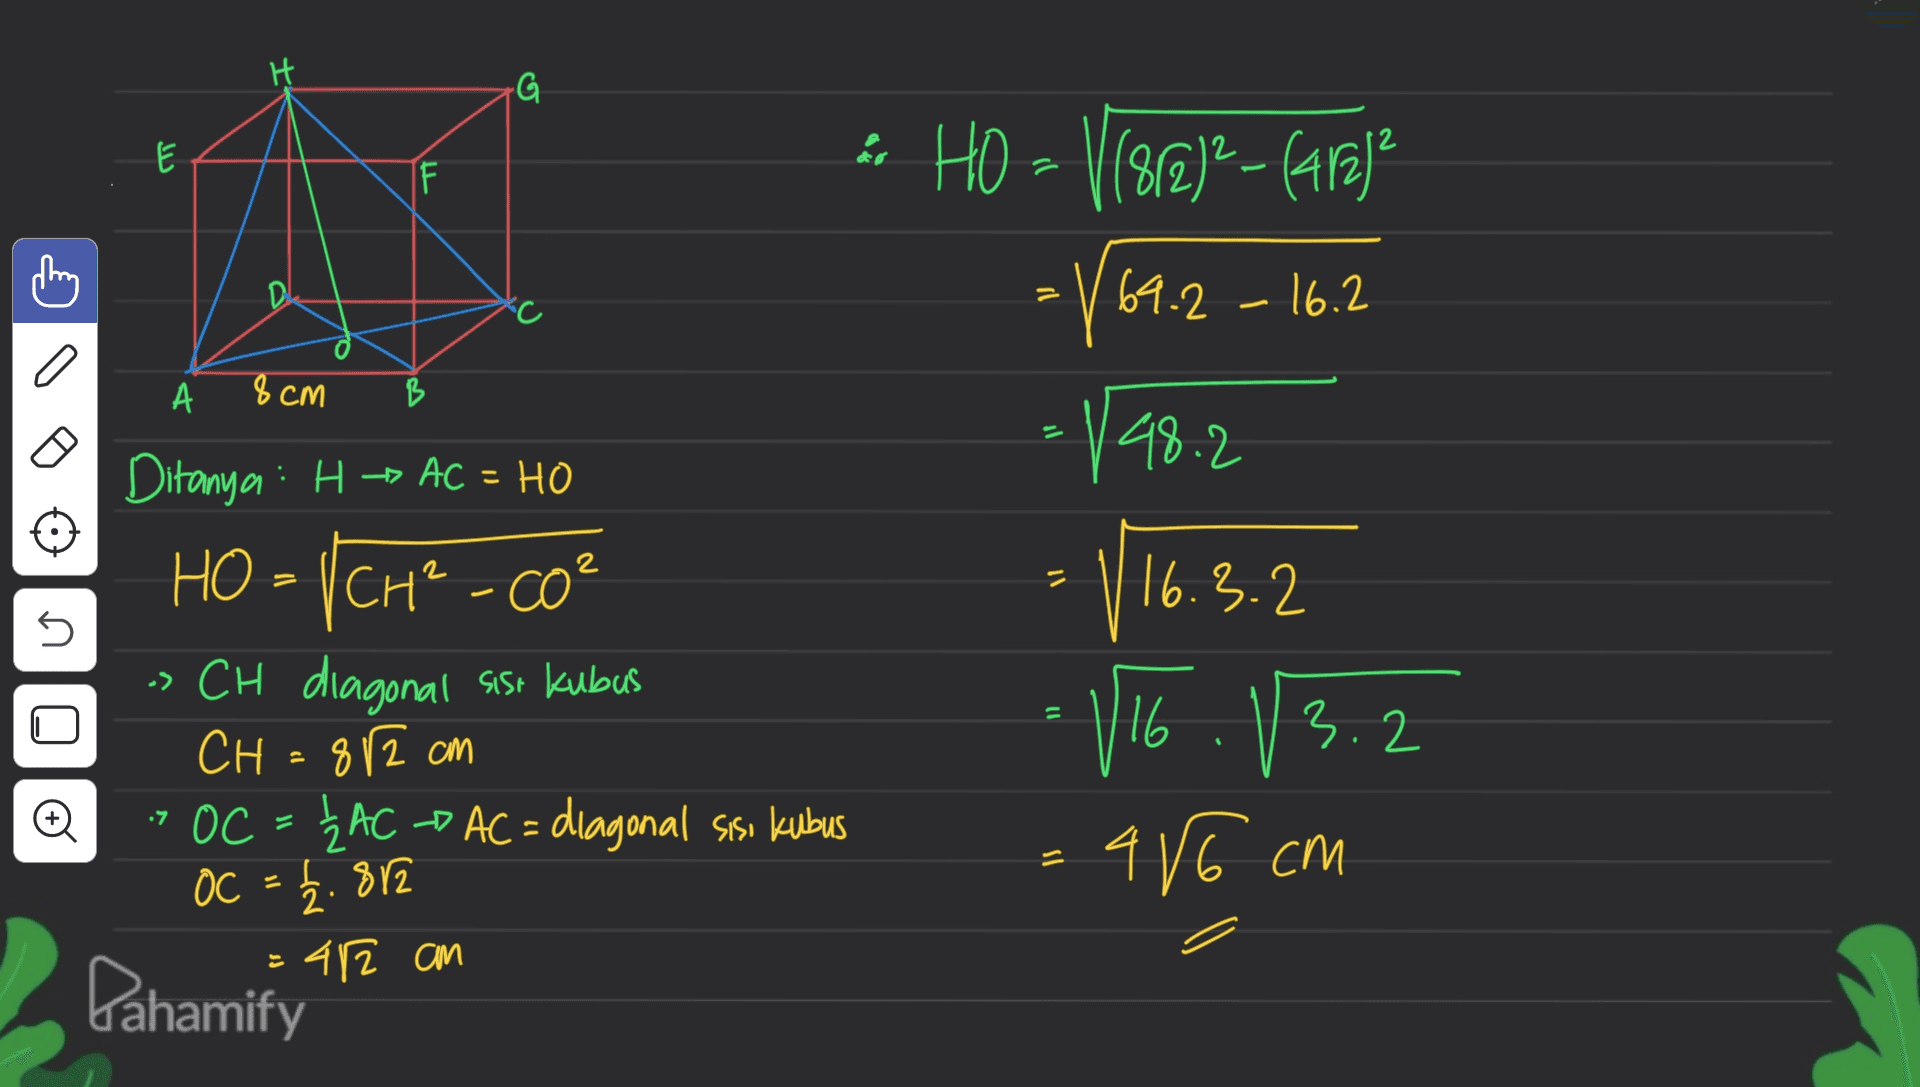 H
G
E
F
D
C
O
A 8 cm B
Ditanya : H → AC = HO
HO = √CH² - CO²
-> CH diagonal sisi kubus
CH = 8√2 cm
-> OC = ½ AC → AC = diagonal sisi kubus
OC = ½ . 8√2
= 4√2 cm
Pahamify
∴ HO = √(8√2)² - (4√2)²
= √64.2 - 16.2
= √48.2
= √16.3.2
= √16 . √3.2
= 4√6 cm